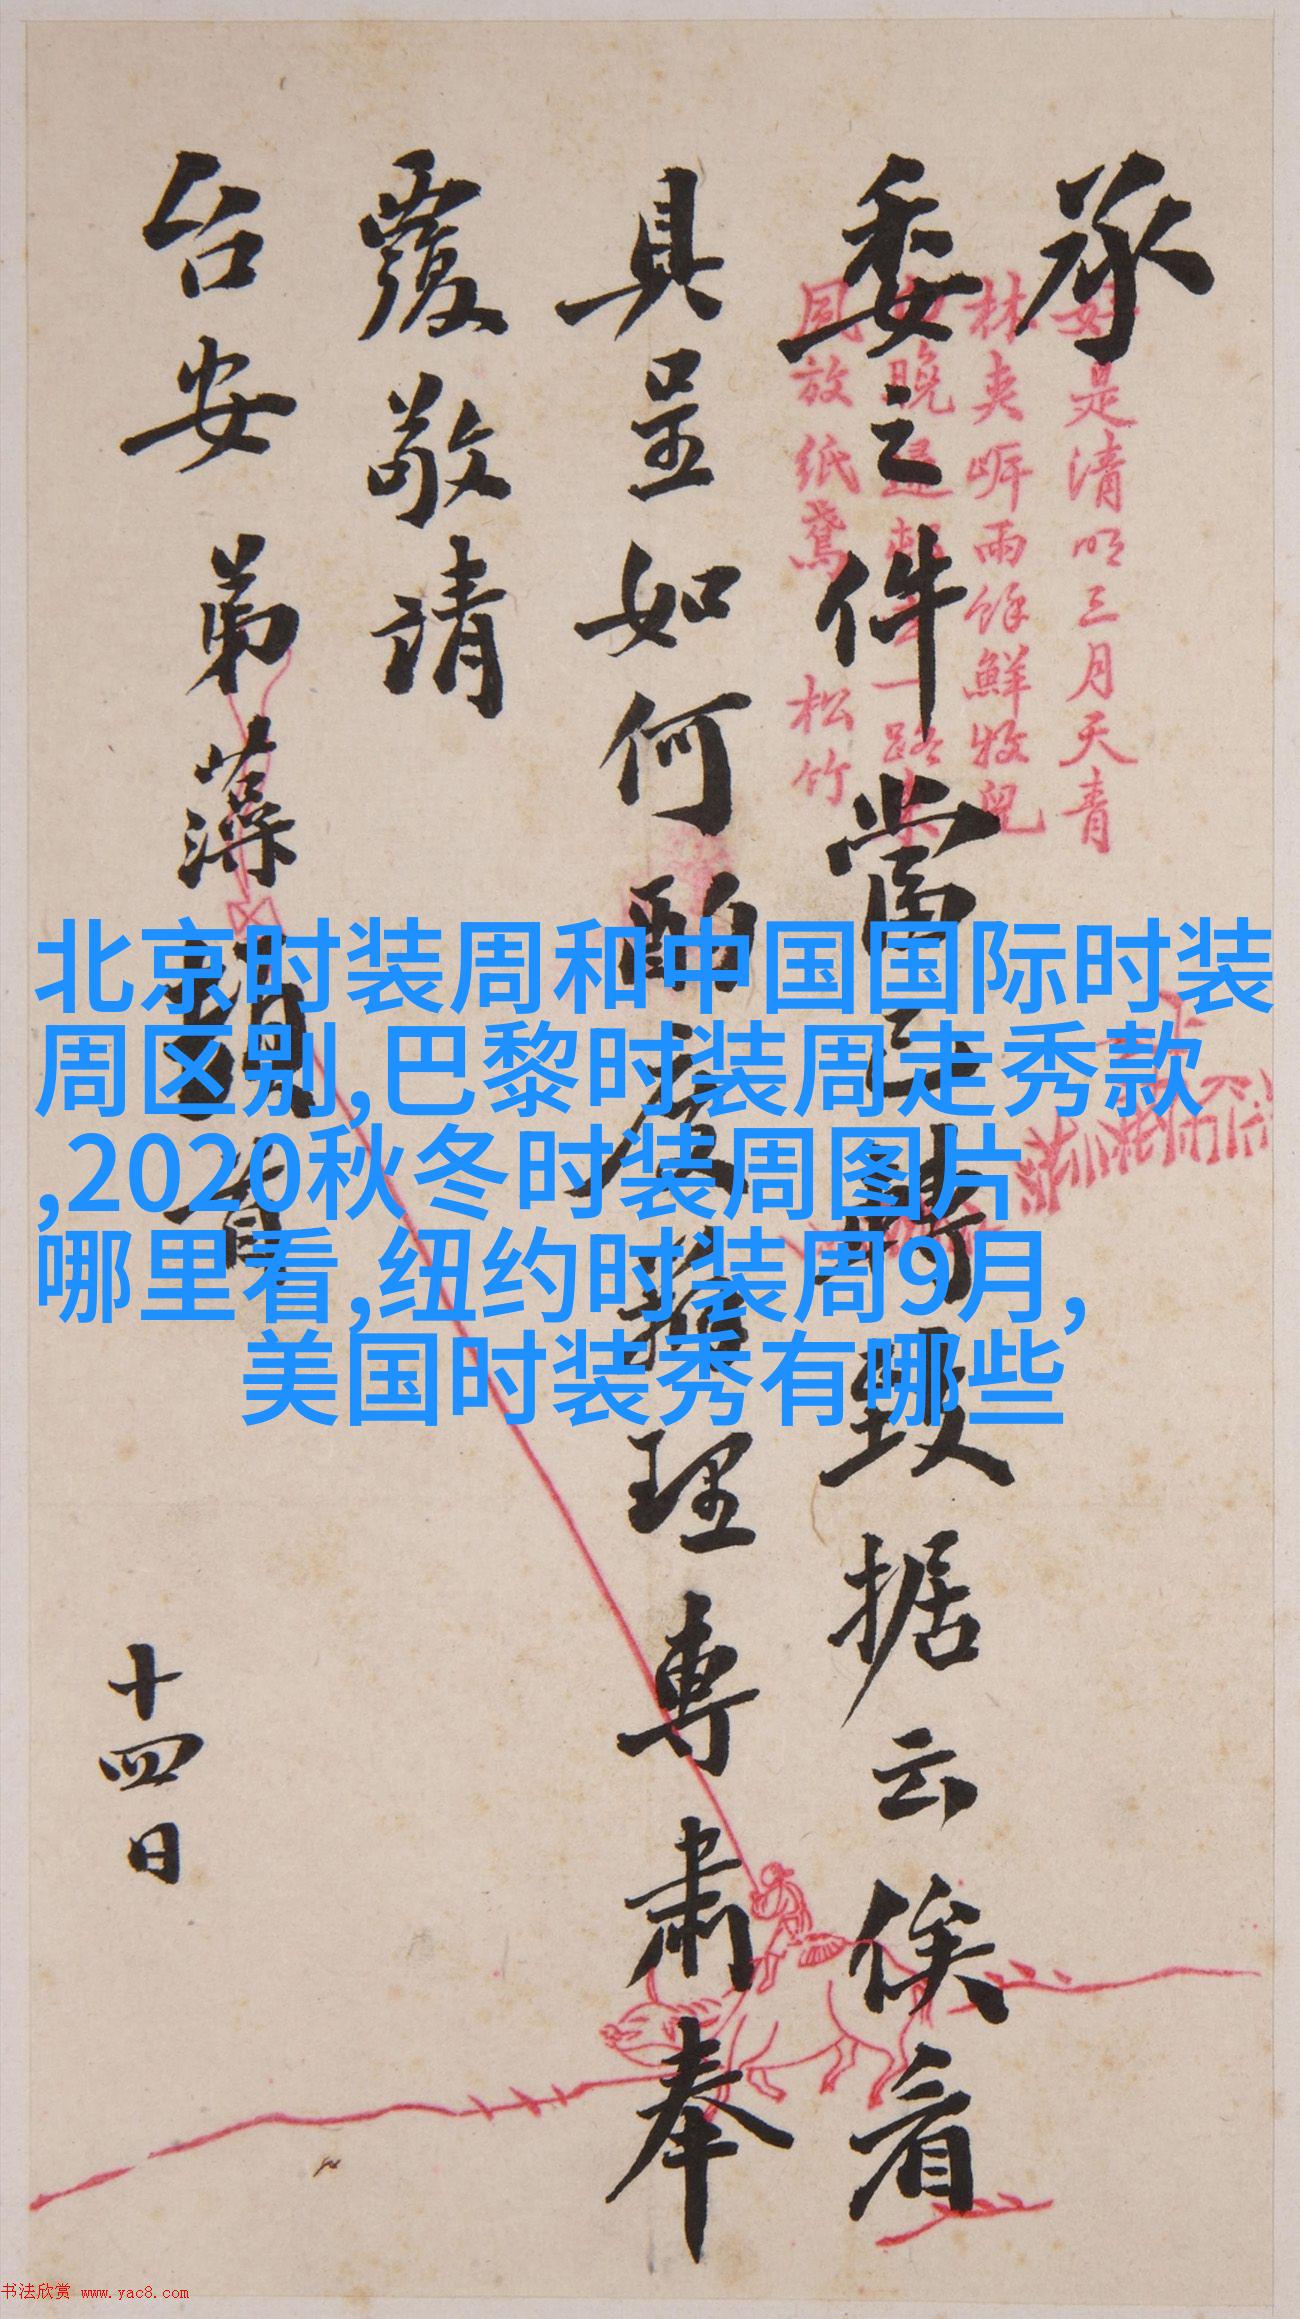 承
委之件當已轉致据云俟看
具呈如何酌度辦理專肅奉
覆敬請
台安 弟藻頓首
十四日
好是清明三月天青
林夾岍雨餘鮮牧兒
晚歸一路
同放紙鳶 松竹
北京时装周和中国国际时装
周区别,巴黎时装周走秀款
,2020秋冬时装周图片
哪里看,纽约时装周9月,
美国时装秀有哪些
书法欣赏 www.yac8.com